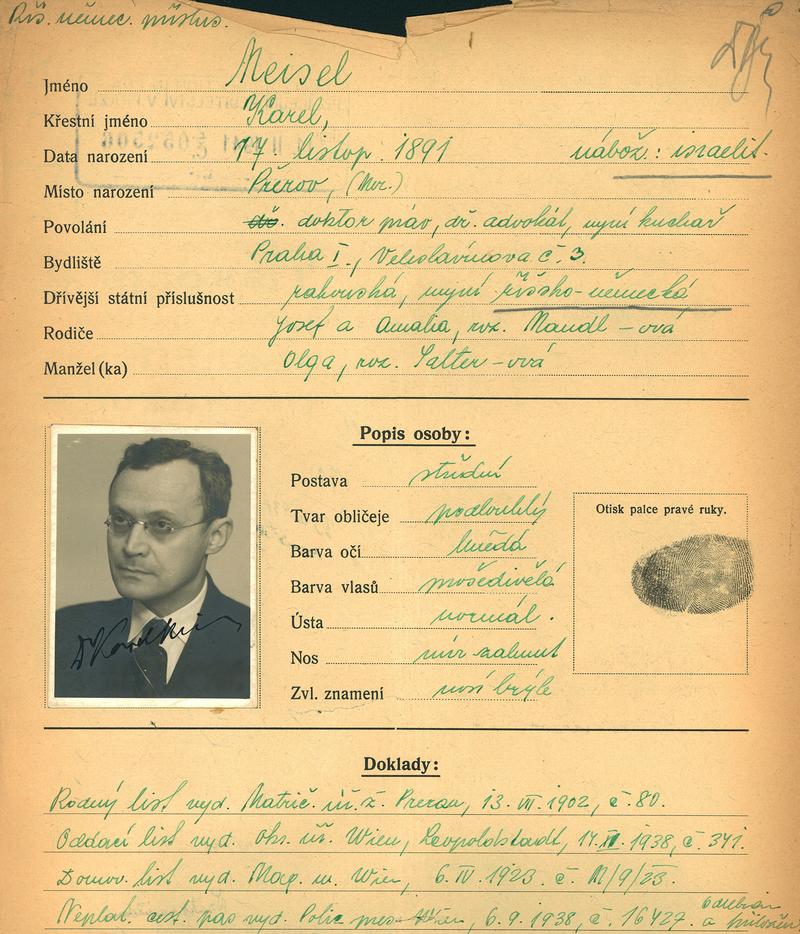 Říš. němec. přísluš.
Jméno Meisel
Křestní jméno Karel,
Data narození 17. listop. 1891 nábož.: israelit.
Místo narození Přerov, (Mor.)
Povolání doktor práv, dř. advokát, nyní kuchař
Bydliště Praha I., Veleslavínova č. 3.
Dřívější státní příslušnost rakouská, nyní říšsko-německá
Rodiče Josef a Amalia, roz. Mandl-ová
Manžel (ka) Olga, roz. Salter-ová
Popis osoby:
Postava střední
Tvar obličeje podlouhlý
Barva očí hnědá
Barva vlasů prošedivělá
Ústa normál.
Nos mír. zahnut
Zvl. znamení nosí brýle
Otisk palce pravé ruky.
Doklady:
Rodný list vyd. Matrič. úř. ž. Prerau, 13. VII. 1902, č. 80.
Oddací list vyd. okr. úř. Wien, Leopoldstadt, 1938, č. 341.
Domov. list vyd. Mag. m. Wien, 6. IV. 1923. č. M/9/23.
Neplat. cest. pas vyd. Polic. pres. Wien, 6. 9. 1938, č. 16427. odebrán a přiložen